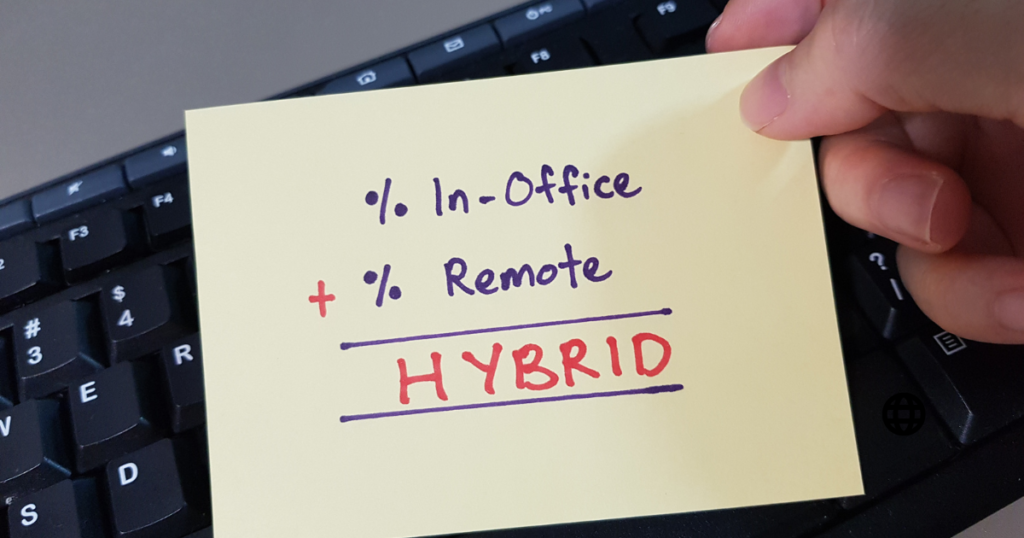 % In-Office
+ % Remote
HYBRID
F9
F8
F4
F3
2
$
4
#
3
R
E
W
D
S
?